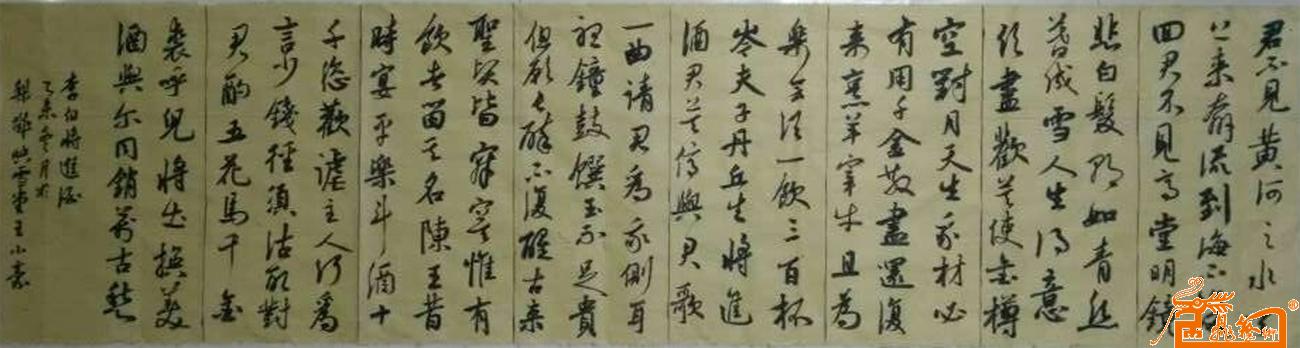 君不見黄河之水天
上来奔流到海不復
回君不見高堂明鏡
悲白髮朝如青丝
暮成雪人生得意
須盡歡莫使金樽
空對月天生我材必
有用千金散盡還復
来烹羊宰牛且為
樂會須一飲三百杯
岑夫子丹丘生將進
酒君莫停與君歌
一曲請君為我側耳
聽鐘鼓饌玉不足貴
但願長醉不復醒古来
聖賢皆寂寞惟有
飲者留其名陳王昔
時宴平樂斗酒十
千恣歡謔主人何為
言少錢徑須沽取對
君酌五花馬千金
裘呼兒將出換美
酒與尔同銷萬古愁
李白將進酒
乙未冬月於
梨鄉映雪堂王小